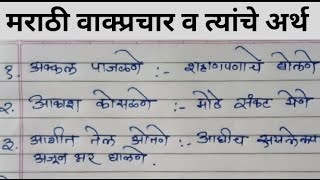 मराठी वाक्प्रचार व त्यांचे अर्थ
१. अक्कल पाजळणे :- शहाणपणाचे बोलणे
२. आकाश कोसळणे :- मोठे संकट येणे
३. आगीत तेल ओतणे :- आधीच असलेल्या
अजून भर घालणे.